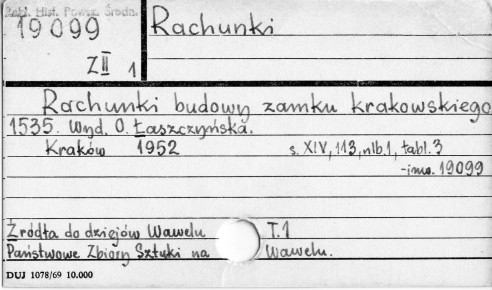 Zakł. Hist. Powsz. Średn.
19099
Z II 1
Rachunki
Rachunki budowy zamku krakowskiego
1535. Wyd. O. Łaszczyńska.
Kraków 1952 s. XIV, 113, nlb.1, tabl.3
-inw. 19099
Źródła do dziejów Wawelu T.1
Państwowe Zbiory Sztuki na Wawelu.
DUJ 1078/69 10.000